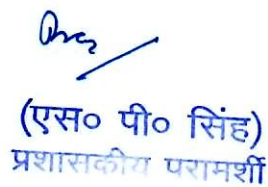 (एस० पी० सिंह)
प्रशासकीय परामर्शी